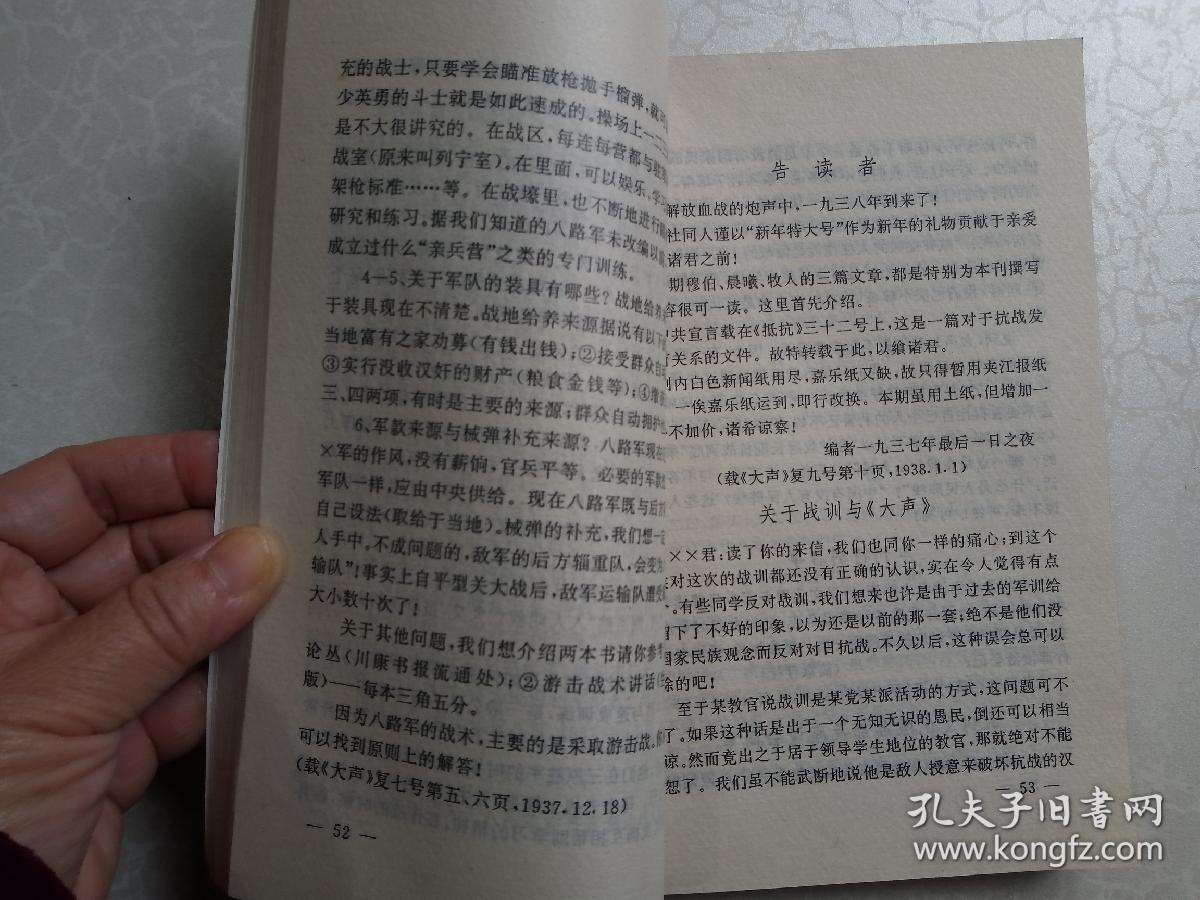 充的战士，只要学会瞄准放枪抛手榴弹，就
少英勇的斗士就是如此速成的。操场上一
是不大很讲究的。在战区，每连每营都与
战室(原来叫列宁室)。在里面，可以娱乐、学
架枪标准……等。在战壕里，也不断地进行
研究和练习。据我们知道的八路军未改编以
成立过什么“亲兵营”之类的专门训练。
4—5、关于军队的装具有哪些？战地给
于装具现在不清楚。战地给养来源据说有以
当地富有之家劝募(有钱出钱)；②接受群众自
③实行没收汉奸的财产(粮食金钱等)；④
三、四两项，有时是主要的来源；群众自动拥护
6、军款来源与械弹补充来源？八路军现
×军的作风，没有薪饷，官兵平等。必要的军
军队一样，应由中央供给。现在八路军既与后方
自己设法(取给于当地)。械弹的补充，我们想一
人手中。不成问题的，敌军的后方辎重队，会变
输队”！事实上自平型关大战后，敌军运输队遭
大小数十次了！
关于其他问题，我们想介绍两本书请你参
论丛(川康书报流通处)；②游击战术讲话
版)——每本三角五分。
因为八路军的战术，主要的是采取游击战。
可以找到原则上的解答！
(载《大声》复七号第五、六页，1937.12.18)
— 52 —
告读者
解放血战的炮声中，一九三八年到来了！
社同人谨以“新年特大号”作为新年的礼物贡献于亲爱
诸君之前！
期穆伯、晨曦、牧人的三篇文章，都是特别为本刊撰写
容很可一读。这里首先介绍。
中共宣言载在《抵抗》三十二号上，这是一篇对于抗战发
关系的文件。故特转载于此，以飨诸君。
内白色新闻纸用尽，嘉乐纸又缺，故只得暂用夹江报纸
一俟嘉乐纸运到，即行改换。本期虽用土纸，但增加一
不加价，诸希谅察！
编者一九三七年最后一日之夜
(载《大声》复九号第十页，1938.1.1)
关于战训与《大声》
××君：读了你的来信，我们也同你一样的痛心；到这个
对这次的战训都还没有正确的认识，实在令人觉得有点
。有些同学反对战训，我们想来也许是由于过去的军训给
留下了不好的印象，以为还是以前的那一套；绝不是他们没
国家民族观念而反对对日抗战。不久以后，这种误会总可以
除的吧！
至于某教官说战训是某党某派活动的方式，这问题可不
了。如果这种话是出于一个无知无识的愚民，倒还可以相当
谅。然而竟出之于居于领导学生地位的教官，那就绝对不能
恕了。我们虽不能武断地说他是敌人授意来破坏抗战的汉
— 53 —
孔夫子旧书网
www.kongfz.com